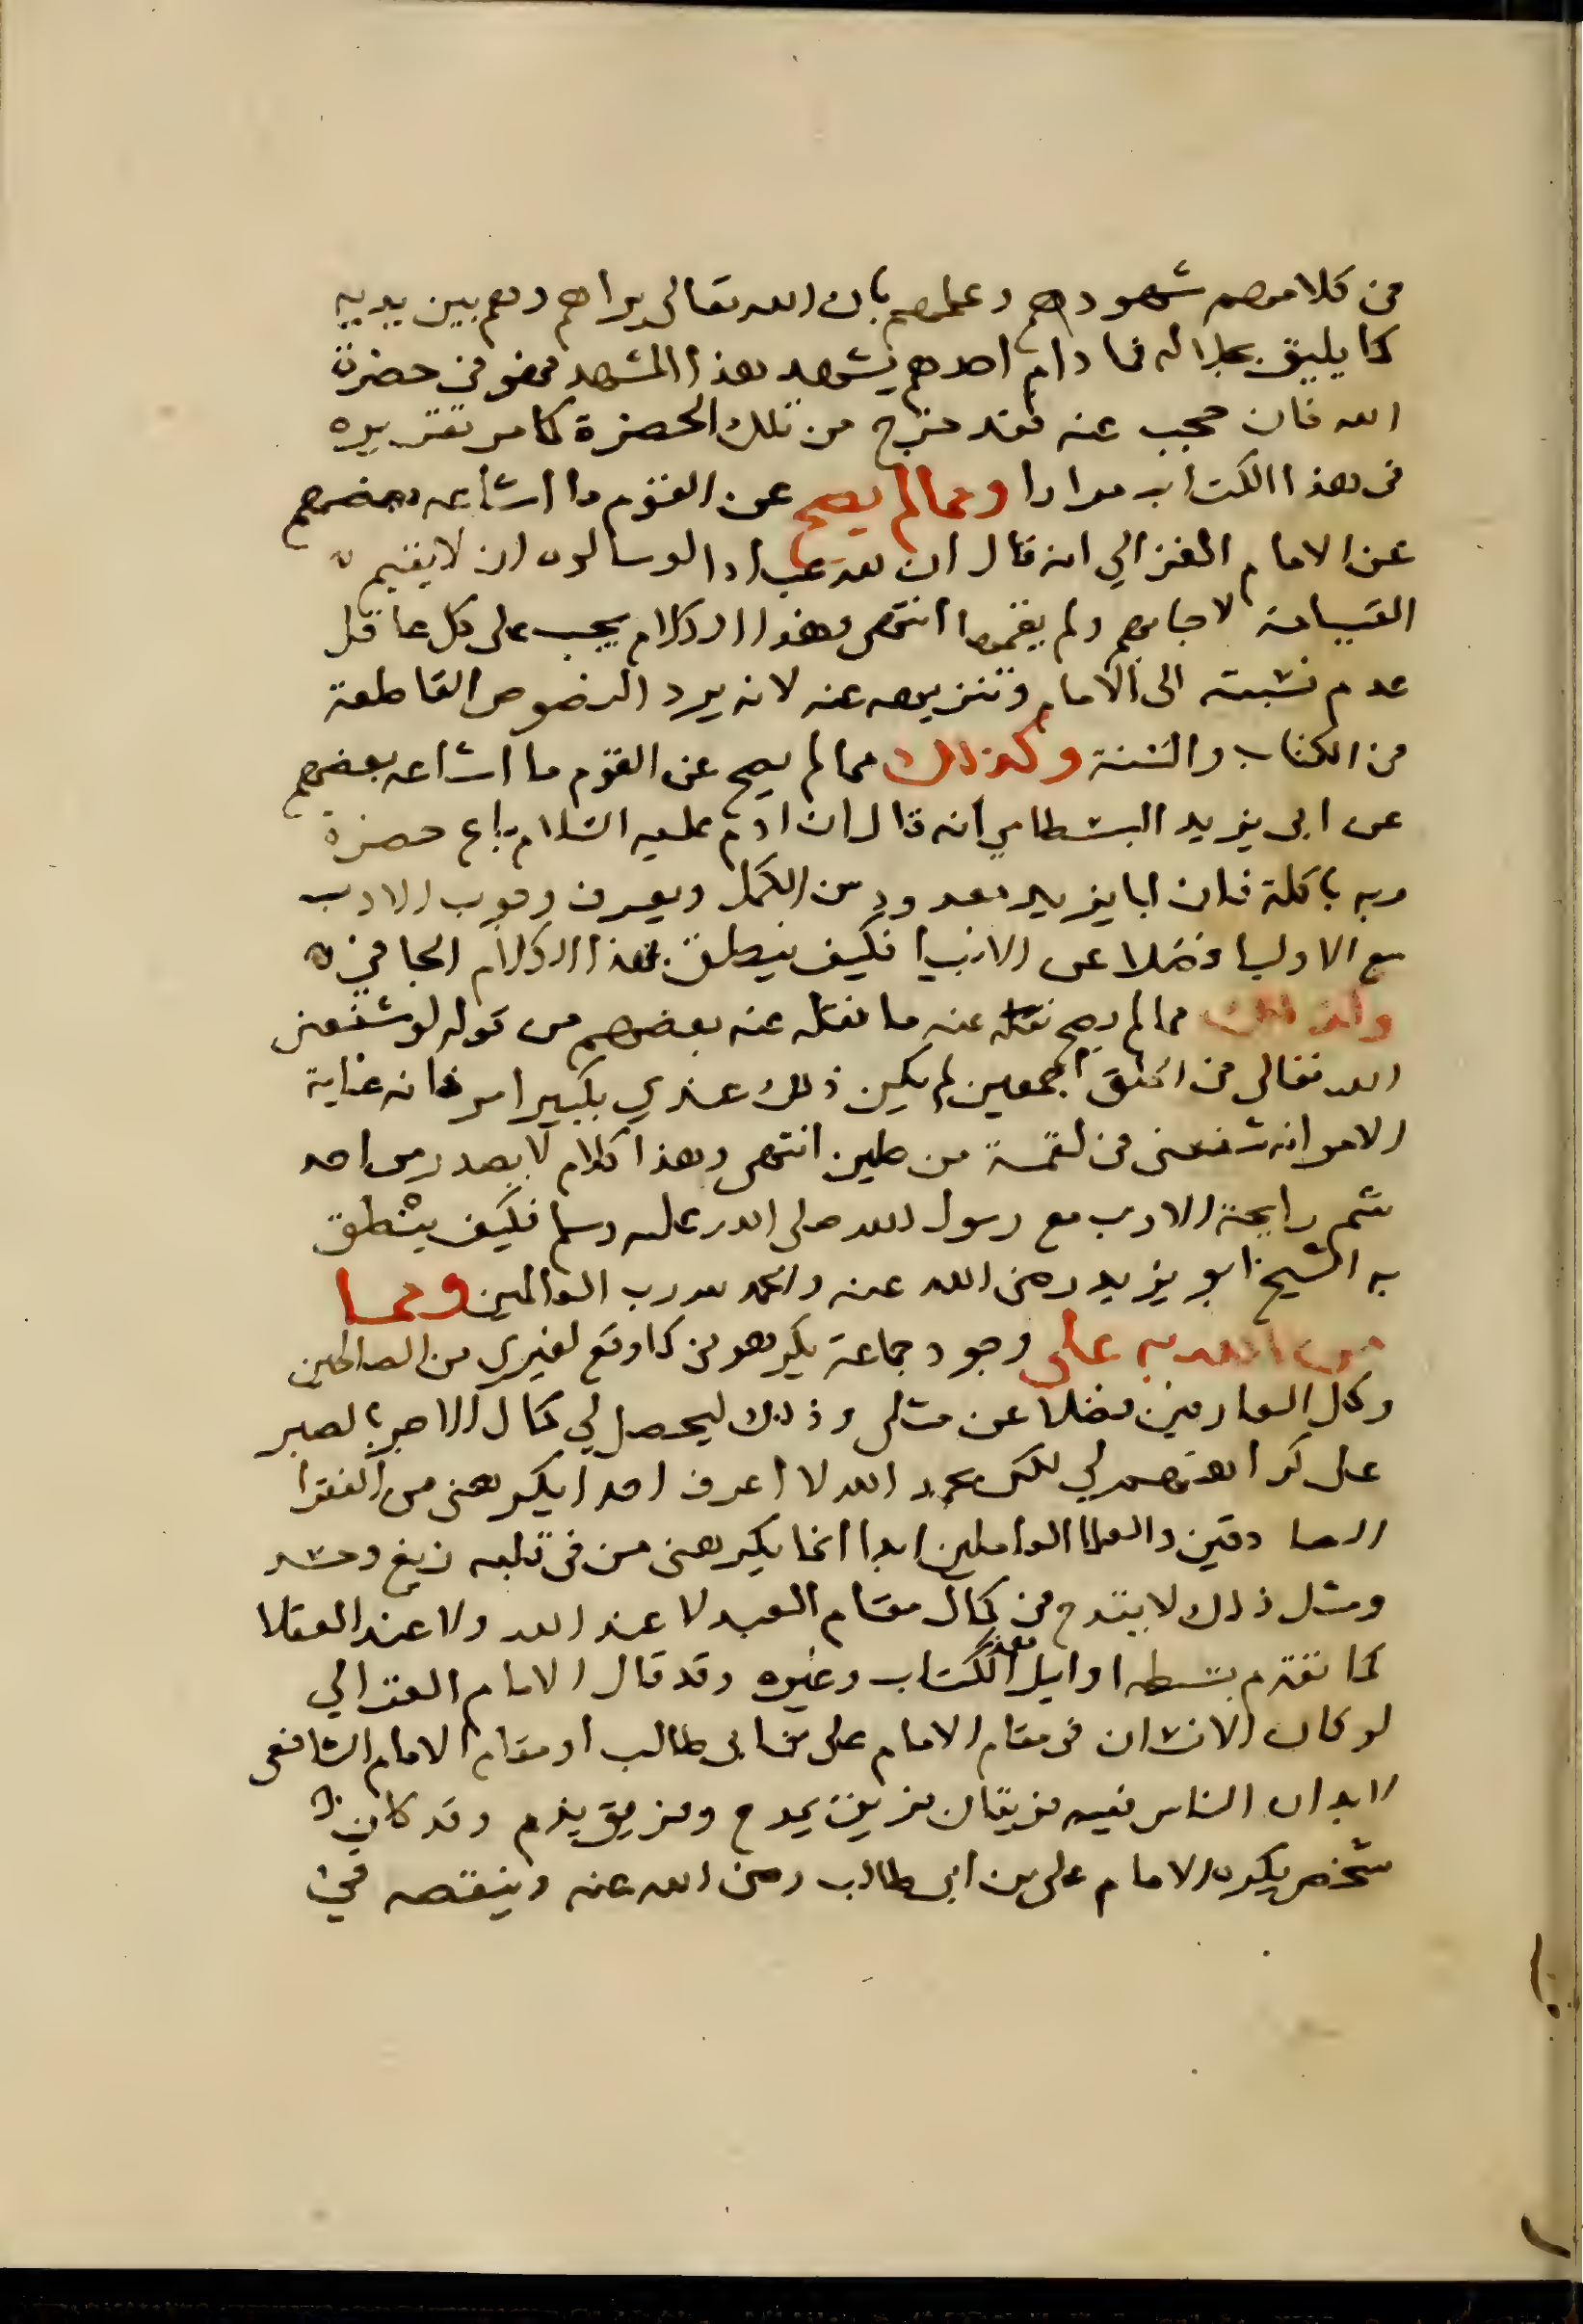 من كلامهم شهودهم وعلمهم بان الله تعالى يراهم وهم بين يديه
كما يليق بجلاله فما دام احدهم يشهد هذا المشهد فهو في حضرة
الله فان حجب عنه فقد خرج من تلك الحضرة كما مر تقريره
في هذا الكتاب مرارا ومما لم يصح عن القوم ما اشاعه بعضهم
عن الامام الغزالي انه قال ان لله عبادا لو سالوه ان لا يقيم
القيامة لاجابهم ولم يقمها انتهى وهذا الكلام يجب على كل عاقل
عدم نسبته الى الامام وتنزيهه عنه لانه يرد النصوص القاطعة
من الكتاب والسنة وكذلك مما لم يصح عن القوم ما اشاعه بعضهم
عن ابى يزيد البسطامي انه قال ان ادم عليه السلام باع حضرة
ربه باكلة فان ابا يزيد معدود من الكمل ويعرف وجوب الادب
مع الاوليا فضلا عن الانبيا فكيف ينطق بهذا الكلام الجافي
وكذلك مما لم يصح نقله عنه ما نقله عنه بعضهم من قوله لو شفعني
الله تعالى في الخلق اجمعين لم يكن ذلك عندي بكبير امر فانه غاية
الامر انه شفعني في لقمة من طين انتهى وهذا كلام لا يصدر من احد
شم رايحة الادب مع رسول الله صلى الله عليه وسلم فكيف ينطق
به الشيخ ابو يزيد رضى الله عنه والحمد لله رب العالمين ومما
من الله به على وجود جماعة يكرهوني كما وقع لغيري من الصالحين
وكمل العارفين فضلا عن مثلى وذلك ليحصل لي كمال الاجر بالصبر
على كراهتهم لي لكن بحمد الله لا اعرف احدا يكرهني من الفقرا
الصادقين والعلما العاملين ابدا انما يكرهني من في قلبه زيغ وحسد
ومثل ذلك لا يقدح في كمال مقام العبد لا عند الله ولا عند العقلا
كما تقدم بسطه اوايل هذا الكتاب وغيره وقد قال الامام الغزالي
لو كان الانسان في مقام الامام على بن ابى طالب او مقام الامام الشافعي
لابد ان الناس فيه فريقان فريق يمدح وفريق يذم وقد كان
شخص يكره الامام على بن ابى طالب رضى الله عنه وينقصه في